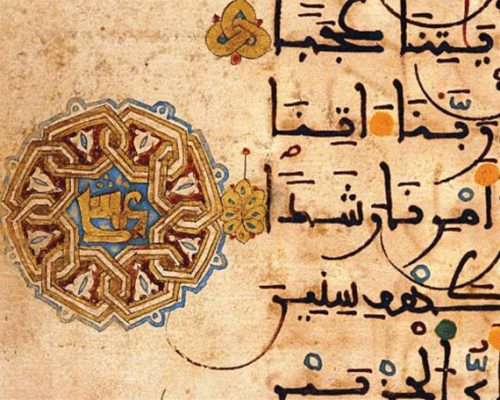 يتنا عجبا
ربنا اتنا
امرنا رشدا
كهف سنين
الحزبين